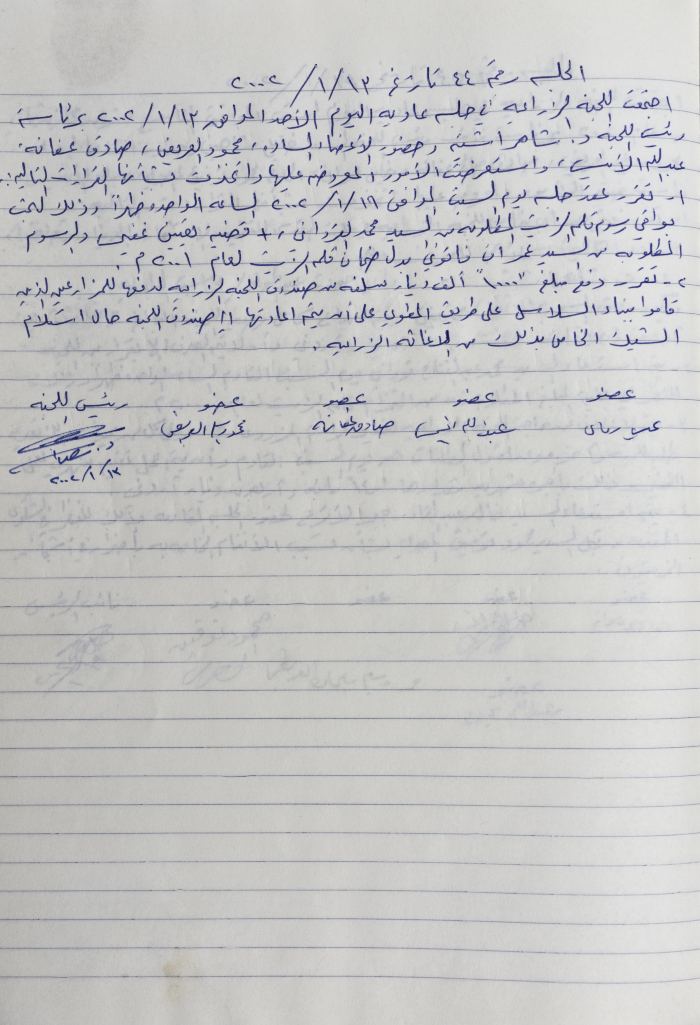 الجلسه رقم ٤٤ تاريخ ١٣/١/٢٠٠٢
اجتمعت اللجنة الزراعيه في جلسه عاديه اليوم الأحد الموافق ١٣/١/٢٠٠٢ برئاسة
رئيس اللجنه د. شاهر اشتيه وحضور الأعضاء الساده، محمود العريض، صادق عفانه،
عبدالله واستعرضت الأمور المعروضه عليها واتخذت بشأنها القرارات التاليه:
١- تقرر عقد جلسه يوم السبت الموافق ١٩/١/٢٠٠٢ الساعه الواحده ظهراً وذلك للبحث
في رسوم قلم الزيت المطلوبه من السيد محمد + قضية تعيين والرسوم
المطلوبه من السيد عمران بدل ضمان قلم الزيت لعام ٢٠٠١م.
٢- تقرر دفع مبلغ "١٠٠٠" ألف دينار سلفه من صندوق اللجنه الزراعيه لدفعها للمزارعين الذين
قاموا ببناء السلاسل على طريق على أن يتم اعادتها الى صندوق اللجنه حال استلام
الشيك الخاص بذلك من الاغاثه الزراعيه.
عضو عضو عضو عضو رئيس اللجنه
عبدالله صادق عفانه محمود العريض
د. شاهر
١٣/١/٢٠٠٢